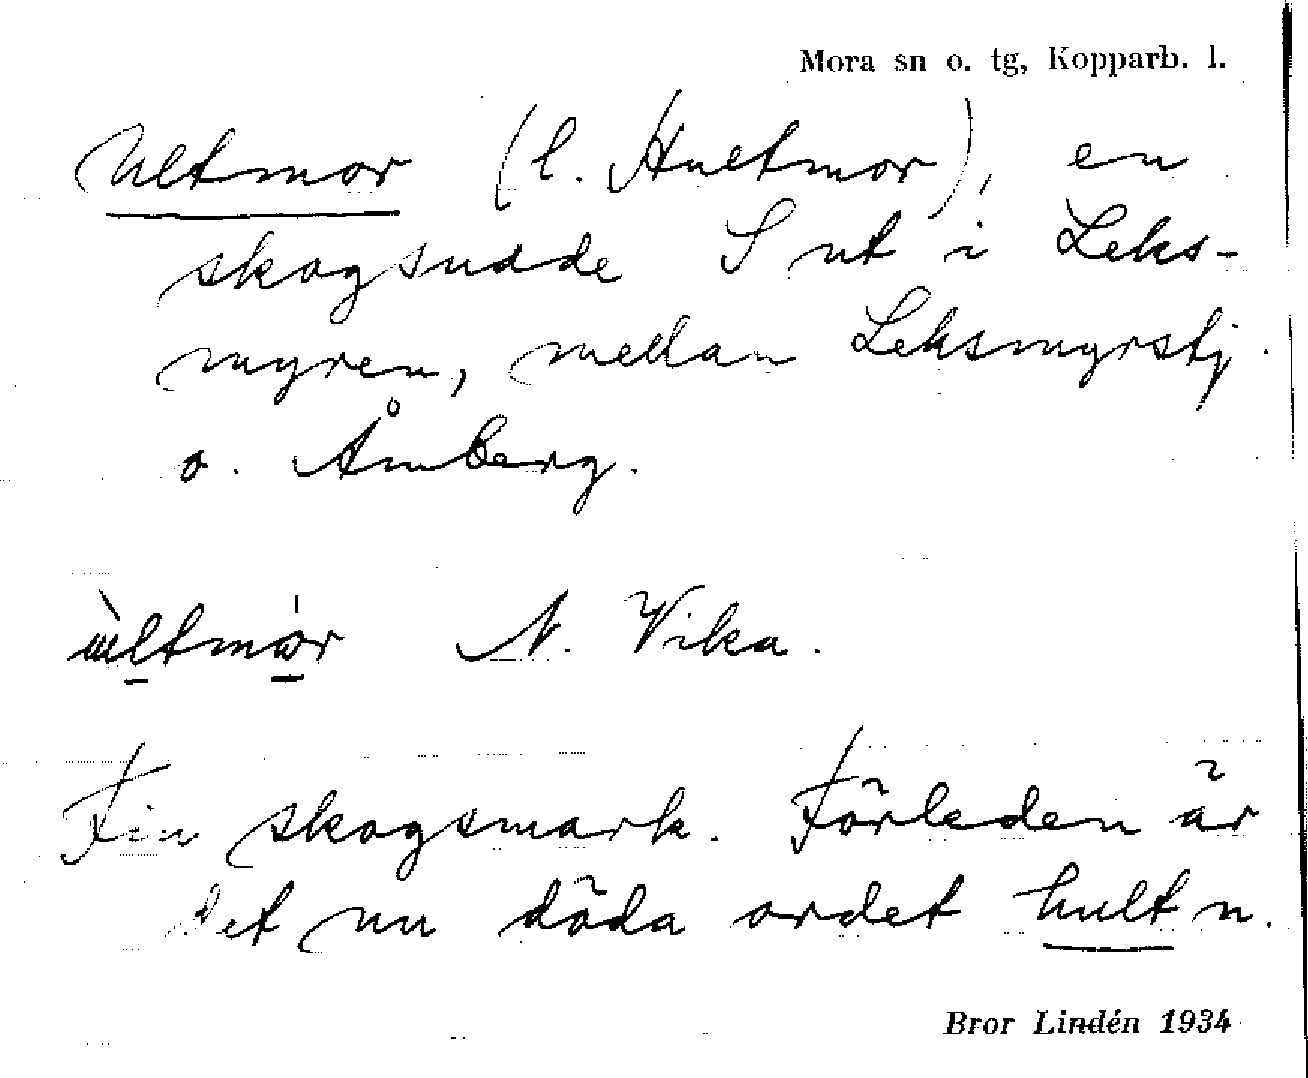 Mora sn o. tg, Kopparb. l.
Ultmor (l. Hultmor), en
skogsudde S ut i Leks-
myren, mellan Leksmyrstj.
o. Åmberg.
ùltmór N. Vika.
Fin skogsmark. Förleden är
det nu döda ordet hult n.
Bror Lindén 1934